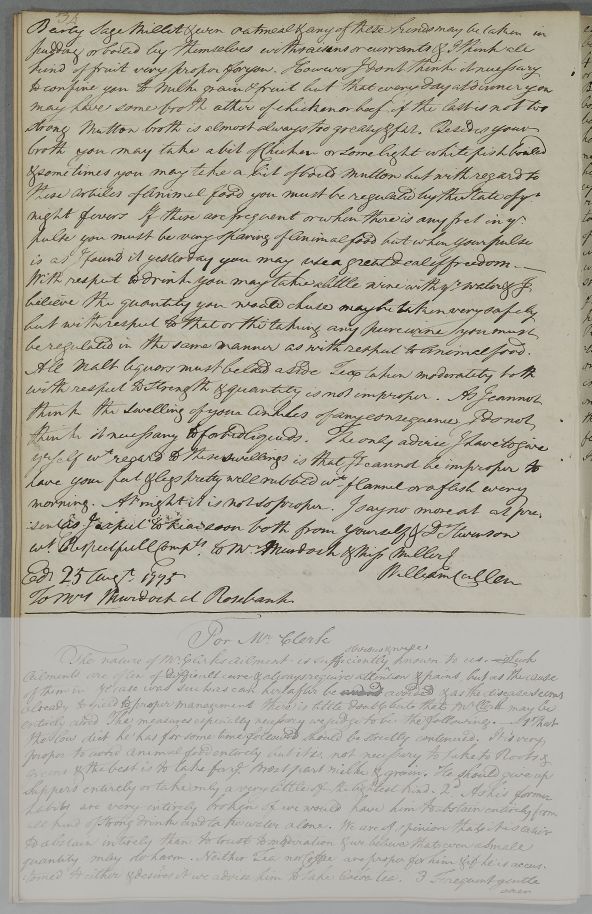 34
Barly Sago Millet & even oatmeal & any of these kinds may be taken in
pudding or boiled by themselves with raisins or currants & I think all
kind of fruit very proper for you. However I don't think it necessary
to confine you to Milk grain & fruit but that every day at dinner you
may have some broth either of chicken or beef if the last is not too
strong Mutton broth is almost always too greasy & fat. Besides your
broth you may take a bit of Chicken or some light white fish boiled
& sometimes you may take a bit of boild Mutton but with regard to
these articles of animal food you must be regulated by the State of yr
night fevers if these are frequent or when there is any fret in yr
pulse you must be very sparing of animal food but when your pulse
is as I found it yesterday you may use a great deal of freedom.
With respect to drink you may take a little wine with yr water & I
believe the quantity you would chuse may be taken very safely
but with respect to that or the taking any pure wine you must
be regulated in the same manner as with respect to animal food.
All Malt liquors must be laid aside Tea taken moderately both
with respect to Strength & quantity is not improper. As I cannot
think the swelling of your ancles of any consequence I do not
think it necessary to forbid liquids. The only advice I have to give
yrself wt regard to these swellings is that it cannot be improper to
have your feet & legs pretty well rubbed wt flannel or a flesh every
morning. At night it is not so proper. I say no more at at pre-
:sent as I expect to hear soon both from yourself & Dr Stevenson
wt Respectfull Compts to Mr Murdoch & Miss Millers
William Cullen
Edr 25 Augt. 1775
To Mrs Murdoch at Rosebank
For Mr. Clerk
The nature of Mr Clerks ailment is sufficiently known to us. Such
obvious &
ailments are often of difficult cure & always require attention & pains but as the cause
of them in yr case was such as can hereafter be avoided & as the disease seems
already to yield to proper management there is little doubt but that Mr Clerk may be
entirely cured The measures especially necessary we judge to be the following. 1st That
the low diet he has for some time followed should be strictly continued. It is very
proper to avoid animal food entirely but it is not necessary to take to Roots &
greens & the best is to take for ye most part milk & grain. He should give up
suppers entirely or take only a very little of the lightest kind. 2d As his former
habits are very entirely broken of we would have him to abstain entirely from
all kind of Strong drink and take water alone. We are of opinion that it is easier
to abstain entirely than to trust to moderation & we believe that even a small
quantity may do harm. Neither Tea nor Coffee are proper for him & if he is accus-
:tomed to either & desires it we advise him to take Cocoa tea. 3 Frequent gentle